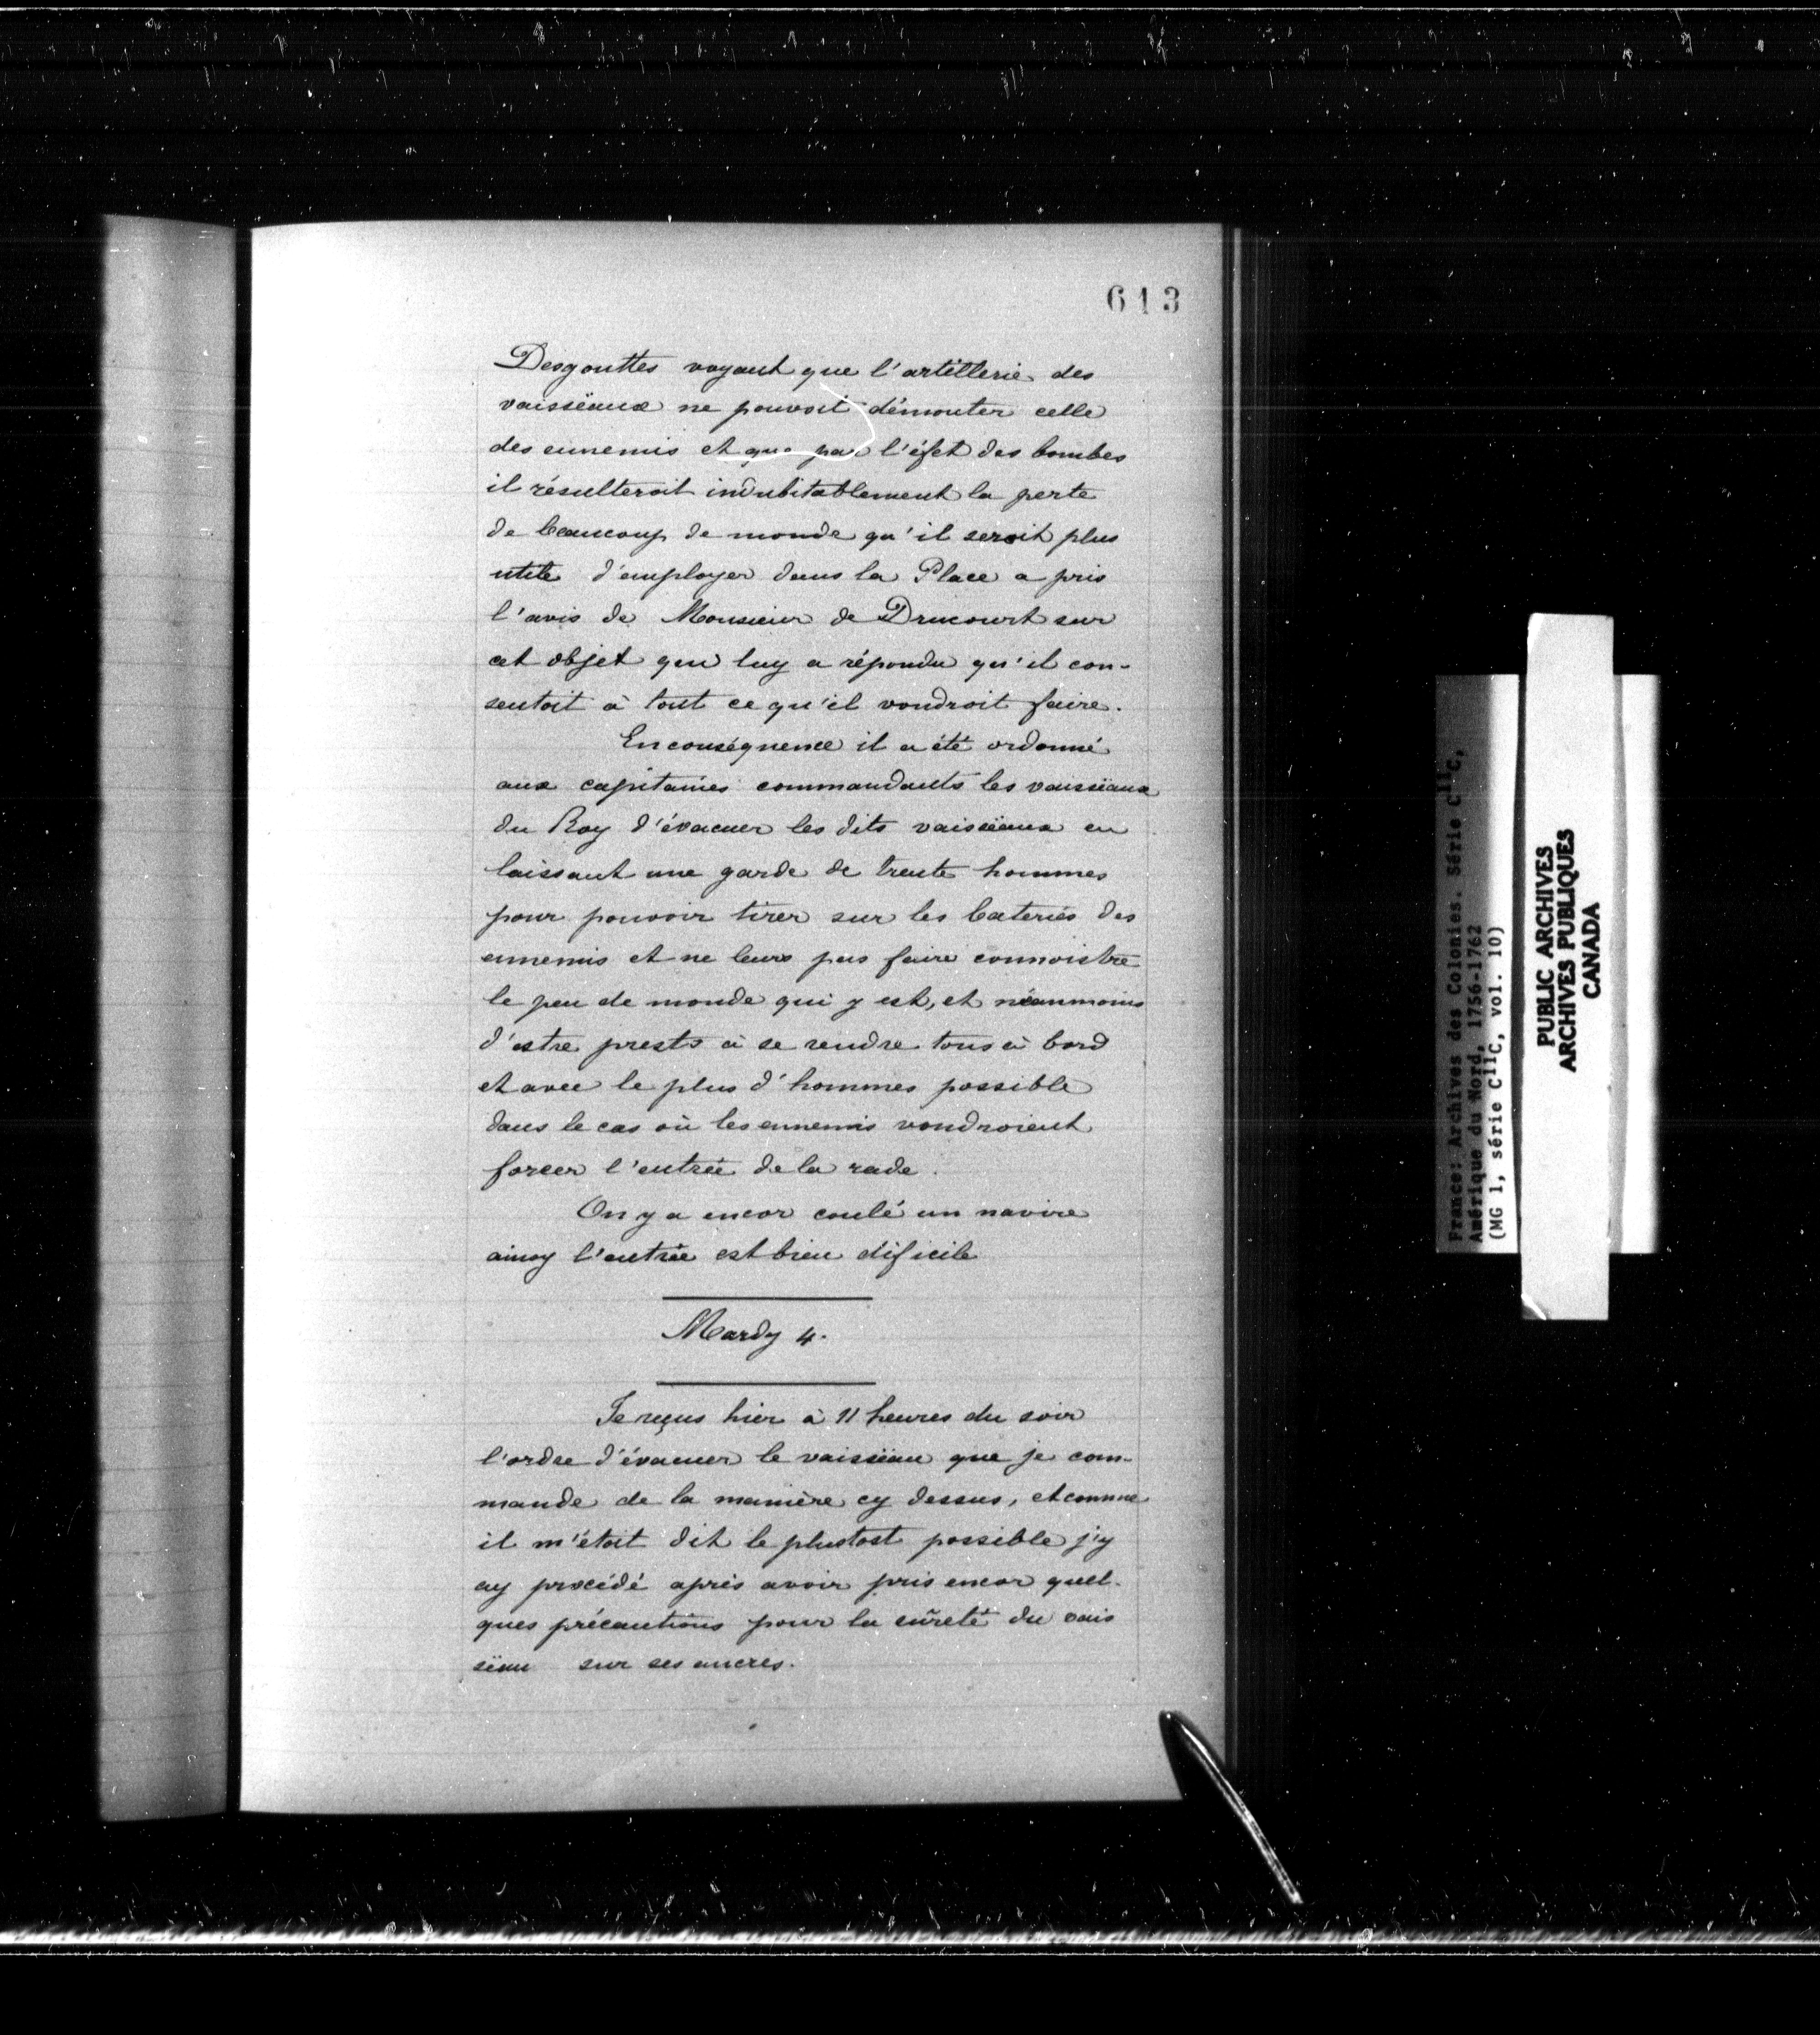 613
Desgouttes voyant que l'artillerie des
vaissëaux ne pouvoit démonter celle
des ennemis et que par l'éfet des bombes
il résulteroit indubitablement la perte
de beaucoup de monde qu'il seroit plus
utile d'employer dans la Place a pris
l'avis de Monsieur de Drucourt sur
cet objet qui luy a répondu qu'il con-
sentoit à tout ce qu'il voudroit faire.
En conséquence il a été ordonné
aux capitaines commandants les vaissëaux
du Roy d'évacuer les dits vaissëaux en
laissant une garde de trente hommes
pour pouvoir tirer sur les bateries des
ennemis et ne leurs pas faire connoistre
le peu de monde qui y est, et néanmoins
d'estre prests à se rendre tous à bord
et avec le plus d'hommes possible
dans le cas où les ennemis voudroient
forcer l'entrée de la rade.
On y a encor coulé un navire
ainsy l'entrée est bien dificile
Mardy 4.
Je reçus hier à 11 heures du soir
l'ordre d'évacuer le vaissëau que je com-
mande de la manière cy dessus, et comme
il m'étoit dit le plustost possible j'y
ay procédé après avoir pris encor quel-
ques précautions pour la sûreté du vais
sëau sur ses ancres.
France: Archives des Colonies. Série C11C,
Amérique du Nord, 1756-1762
(MG 1, série C11C, vol. 10)
PUBLIC ARCHIVES
ARCHIVES PUBLIQUES
CANADA